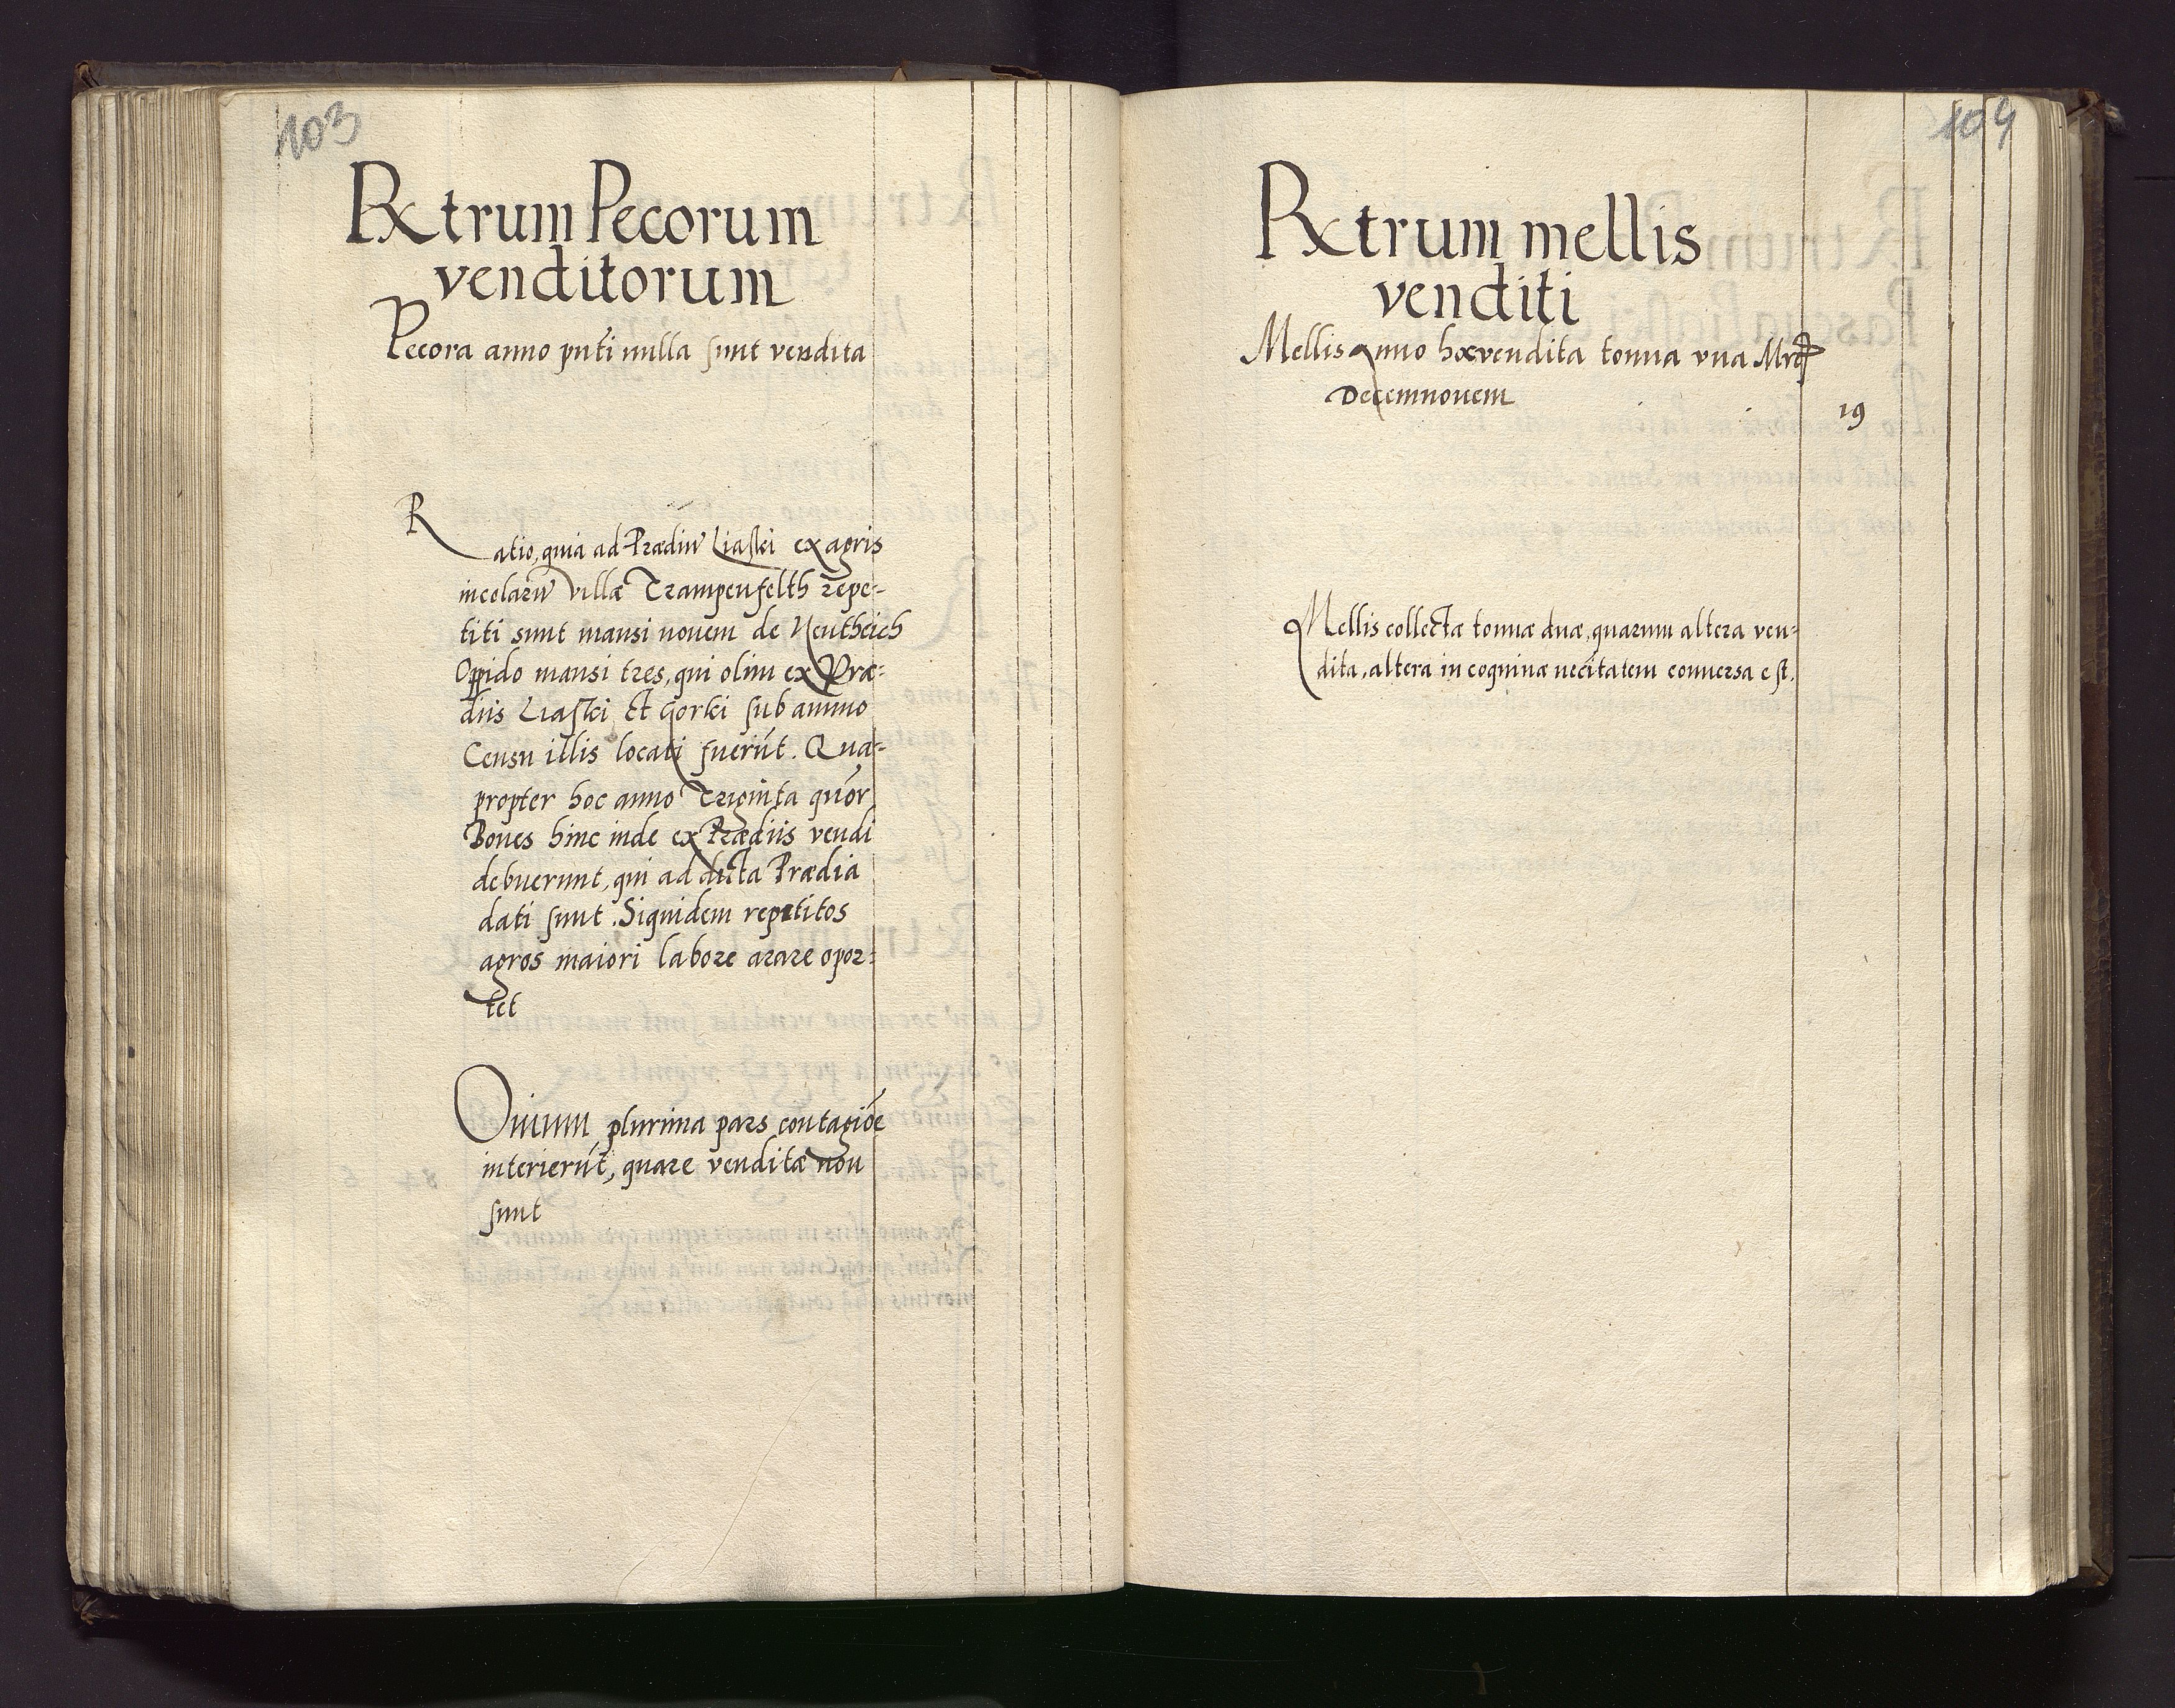 103
Rxtrum Pecorum
venditorum
Pecora anno pñti nulla sunt vendita
Ratio, quia ad Prædiũ Liaski ex agris
incolarũ villæ Trampenfelth repe-
titi sunt mansi novem de Neutheich
Oppido mansi tres, qui olim ex Præ-
diis Liaski et Gorki sub annuo
Censu illis locati fuerũt. Qua-
propter hoc anno Triginta quõr
Boves hinc inde ex Prædiis vendi
debuerunt, qui ad dicta Prædia
dati sunt. Siquidem repetitos
agros maiori labore arare opor-
tet
Ovium plurima pars contagiõe
interierũt, quare venditæ non
sunt
104
Rxtrum mellis
venditi
Mellis anno hoc vendita tonna vna Mrc
Decemnouem
19
Mellis collectæ tonnæ duæ, quarum altera ven-
dita, altera in coquinæ necitatem conversa est.